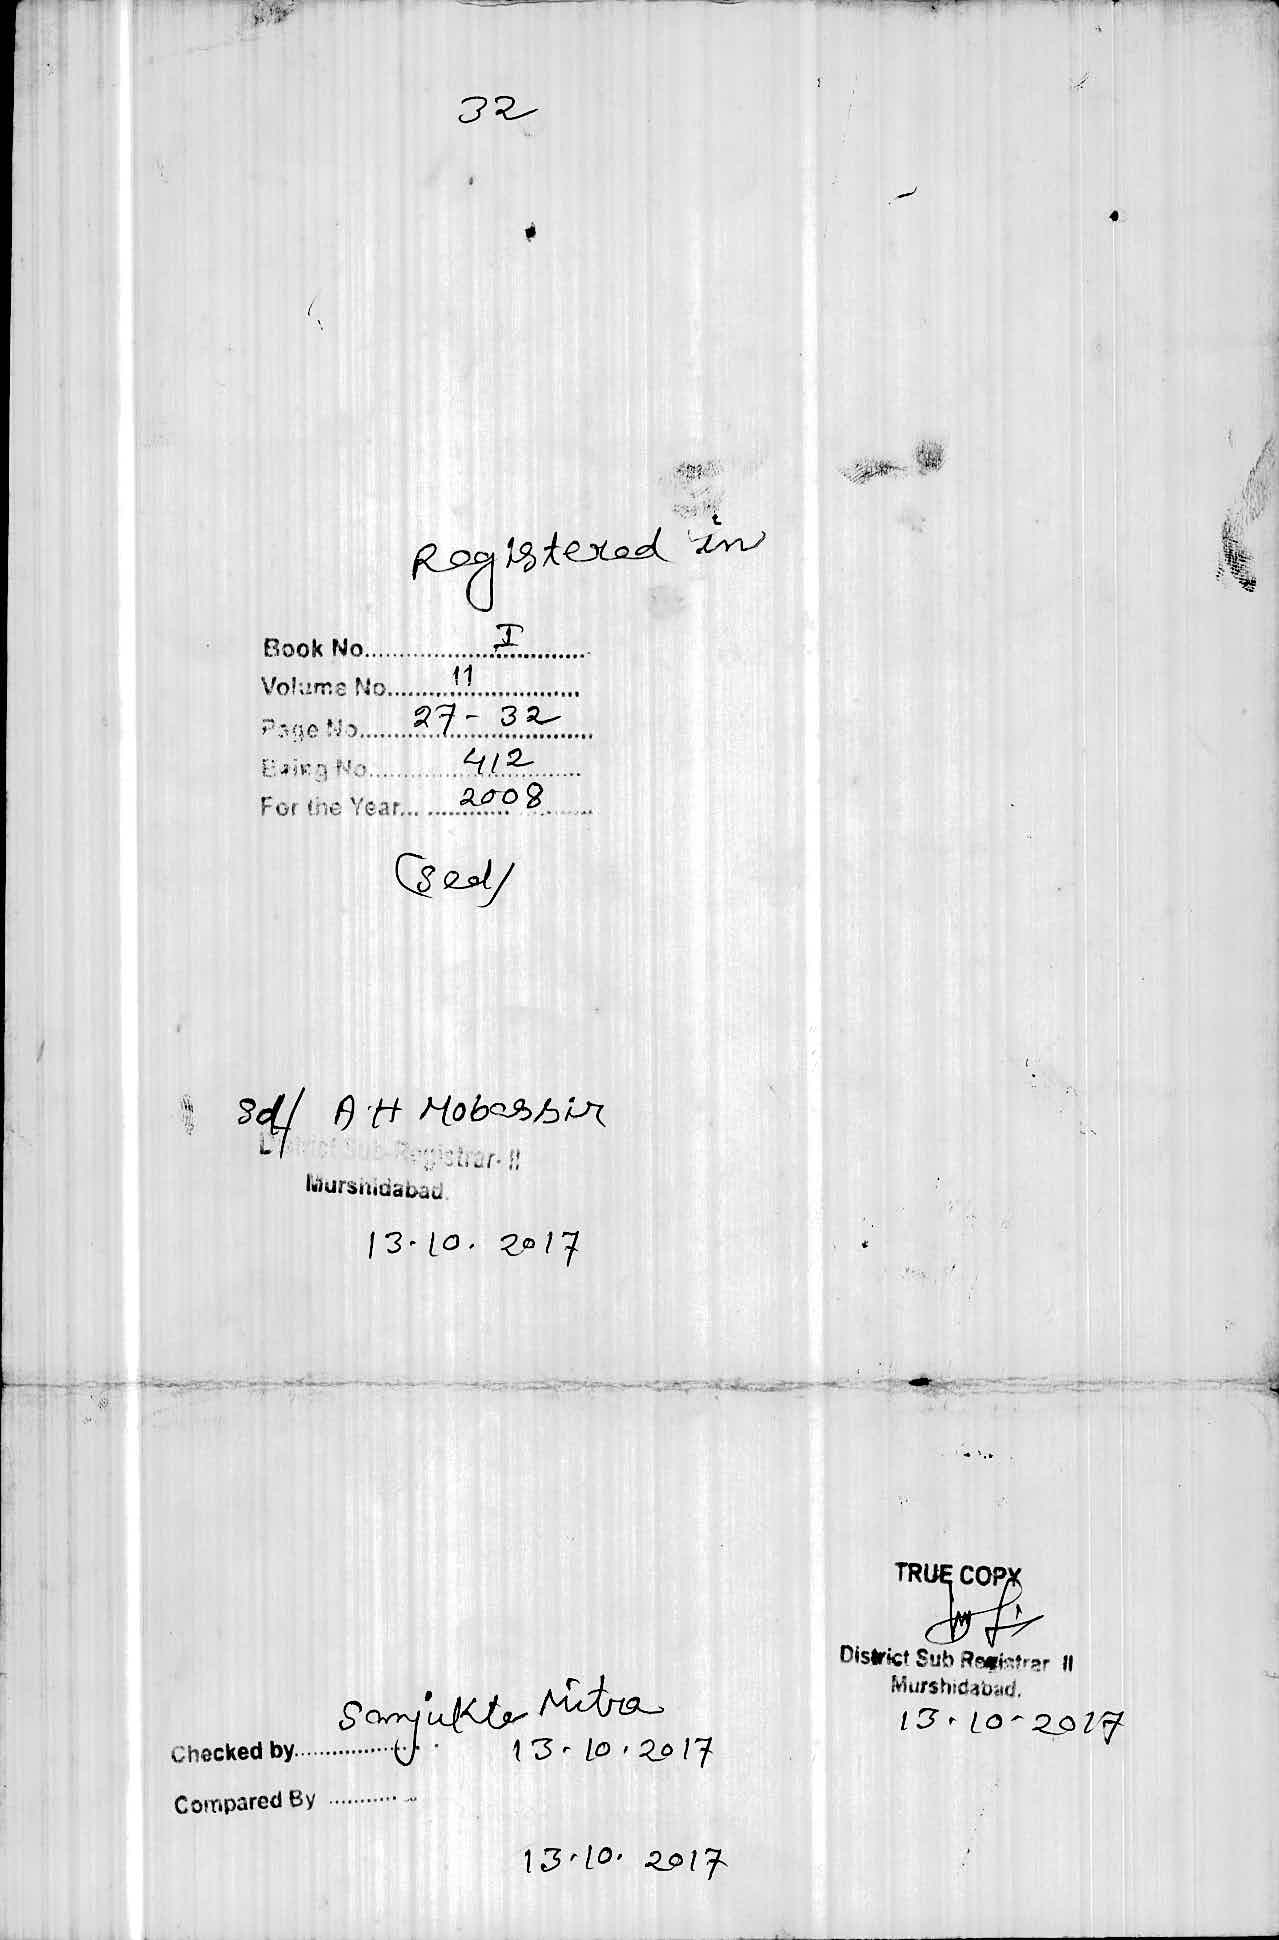 32
Registered in
Book No. I
Volume No. 11
Page No. 27 - 32
Being No. 412
For the Year... 2008
(Sed/
Sd/ A H Mobassir
District Sub-Registrar- II
Murshidabad.
13.10. 2017
TRUE COPY
District Sub Registrar II
Murshidabad.
13.10-2017
Sanjukta Mitra
Checked by 13.10.2017
Compared By
13.10. 2017